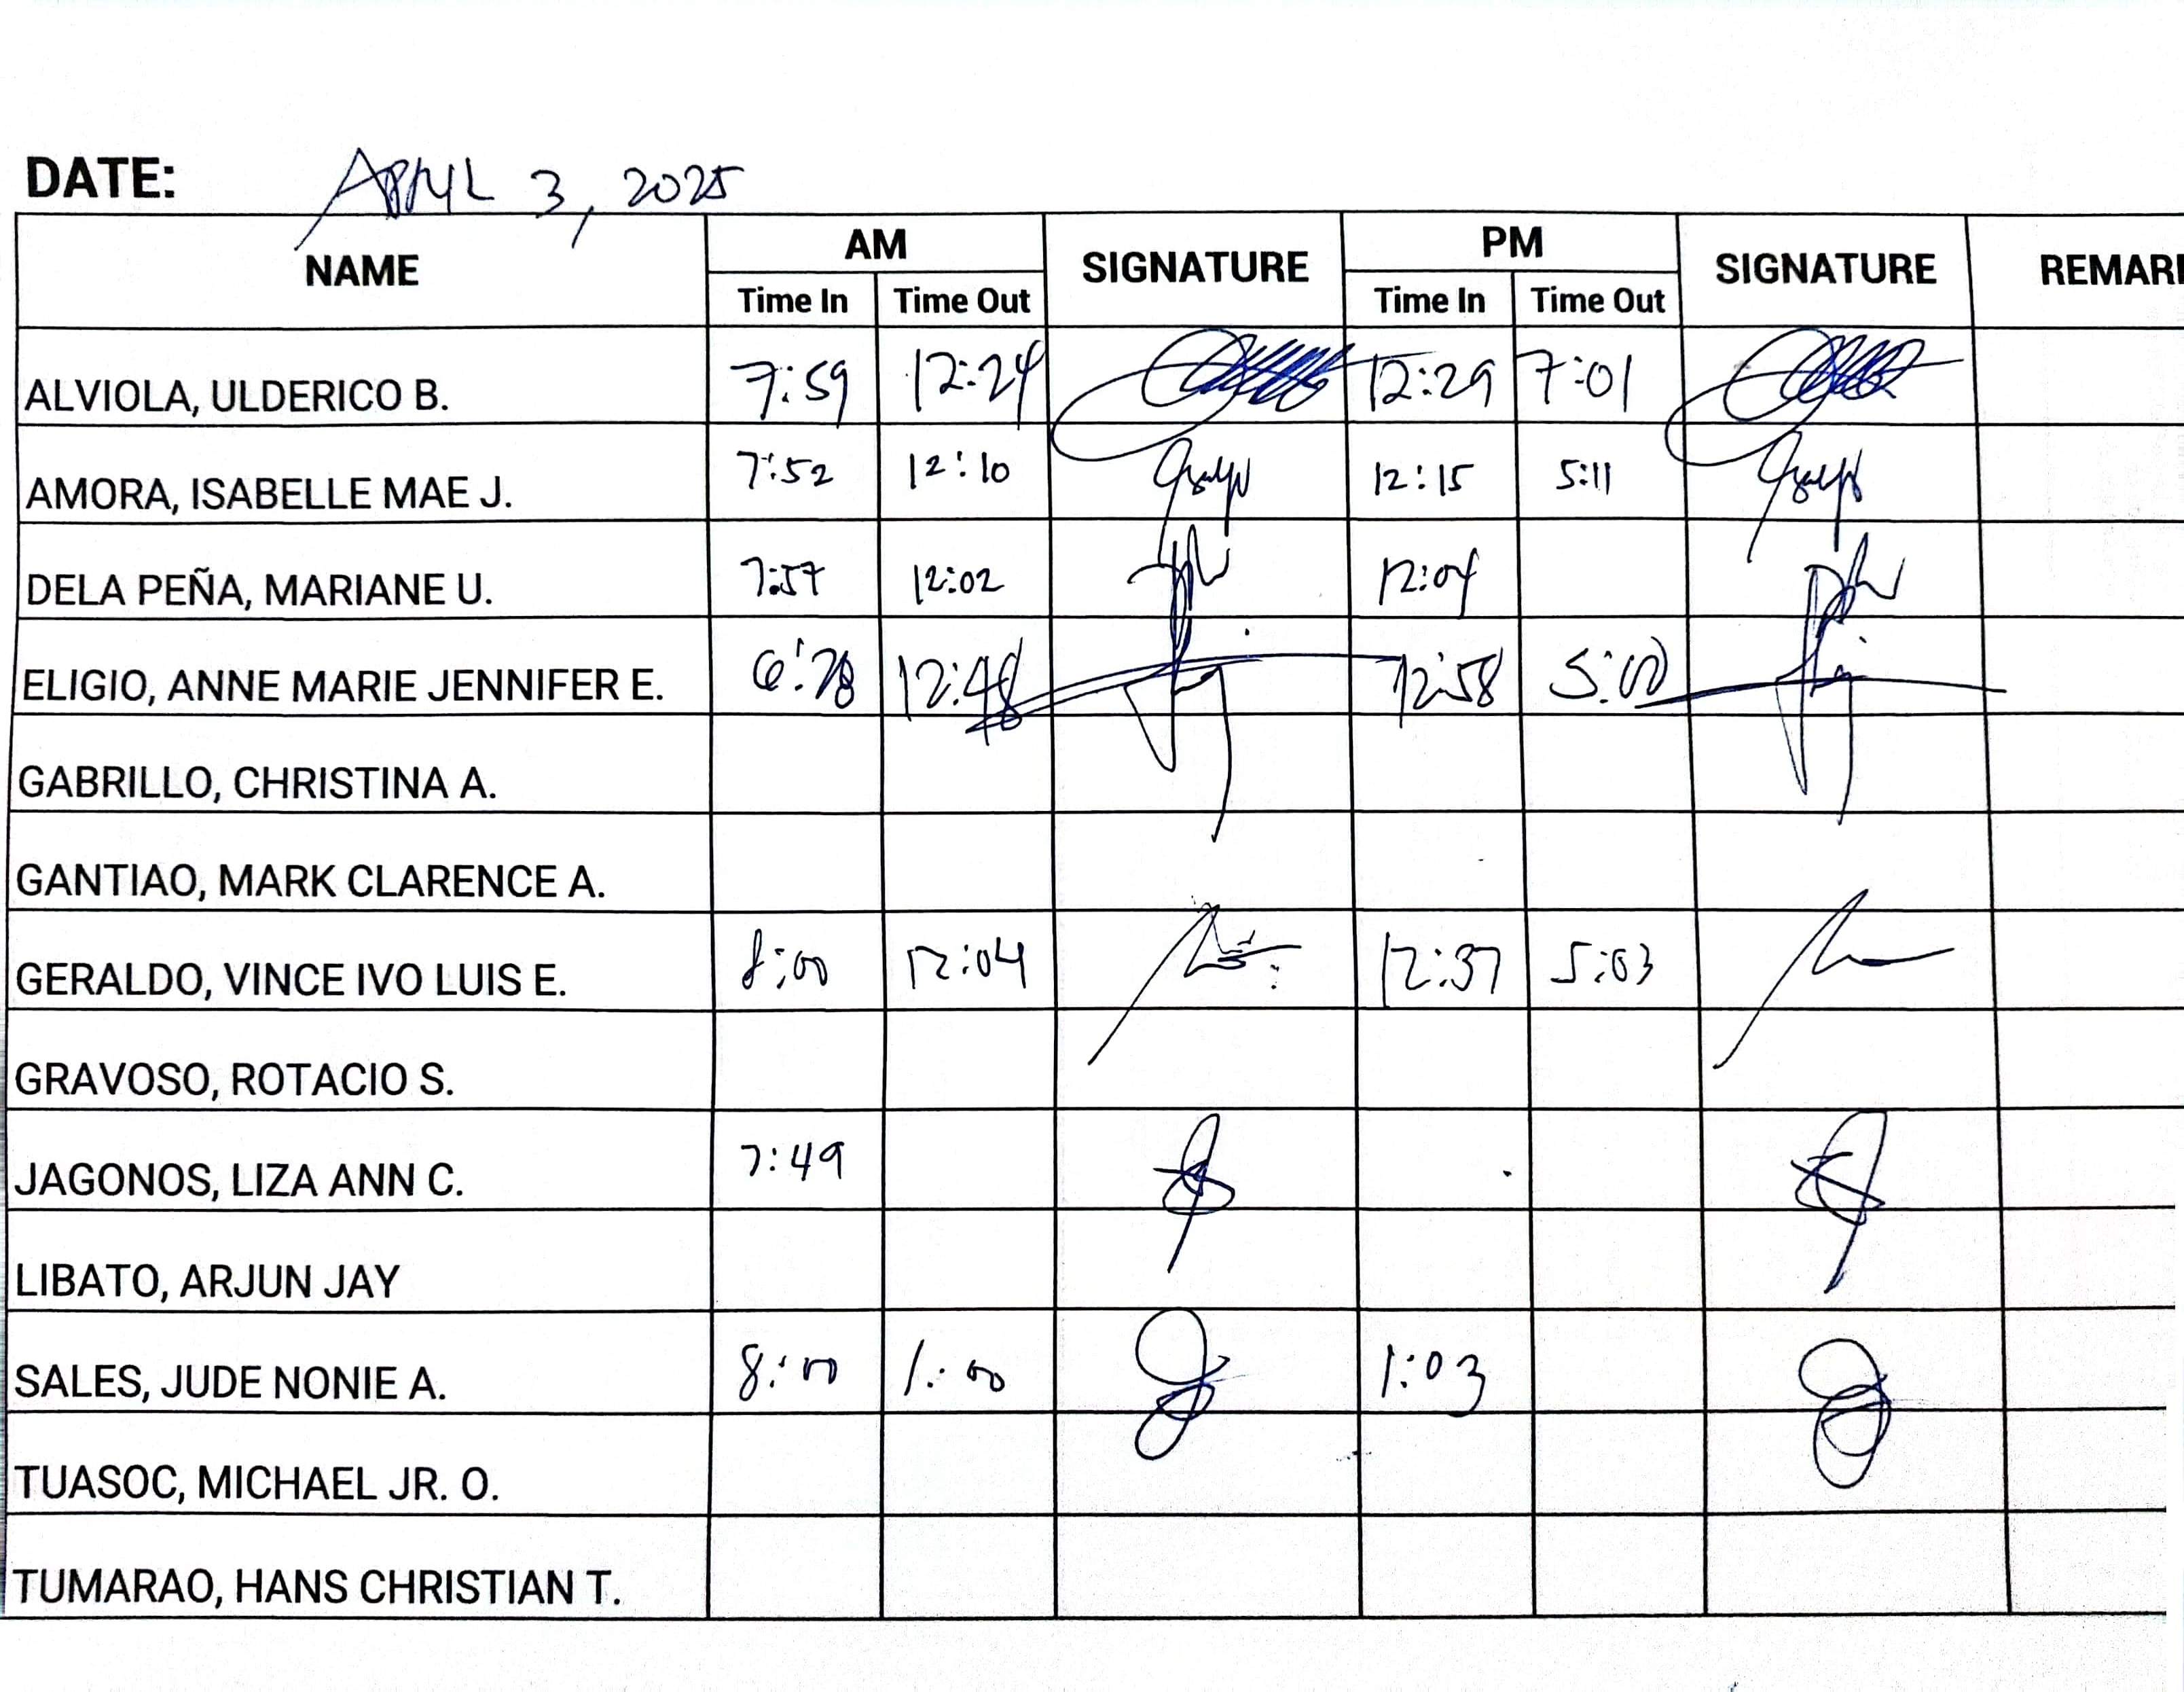 DATE: APRIL 3, 2025
NAME AM SIGNATURE PM SIGNATURE REMAR
Time In Time Out Time In Time Out
ALVIOLA, ULDERICO B. 7:59 12:24 12:29 7:01
AMORA, ISABELLE MAE J. 7:52 12:10 12:15 5:11
DELA PEÑA, MARIANE U. 7:57 12:02 12:04
ELIGIO, ANNE MARIE JENNIFER E. 12:48 12:58 5:00
GABRILLO, CHRISTINA A.
GANTIAO, MARK CLARENCE A.
GERALDO, VINCE IVO LUIS E. 8:00 12:04 12:37 5:03
GRAVOSO, ROTACIO S.
JAGONOS, LIZA ANN C. 7:49
LIBATO, ARJUN JAY
SALES, JUDE NONIE A. 8:00 1:00 1:03
TUASOC, MICHAEL JR. O.
TUMARAO, HANS CHRISTIAN T.